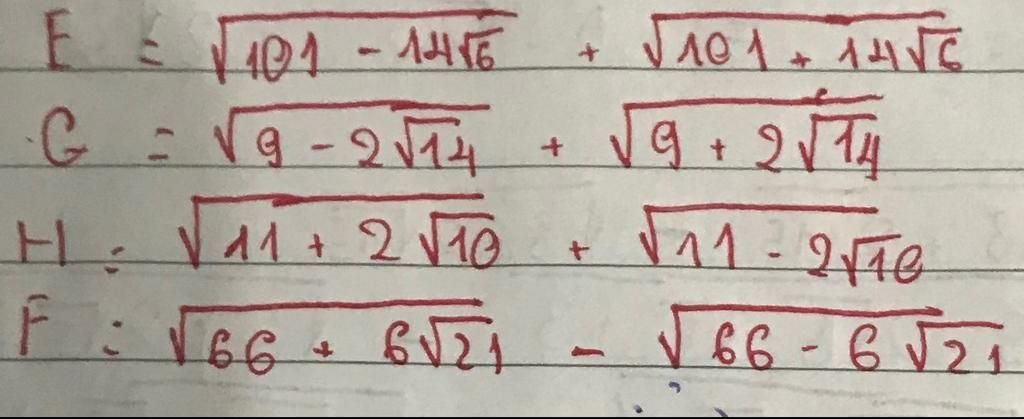 E = √(101 - 14√6) + √(101 + 14√6)
G = √(9 - 2√14) + √(9 + 2√14)
H = √(11 + 2√10) + √(11 - 2√10)
F = √(66 + 6√21) - √(66 - 6√21)